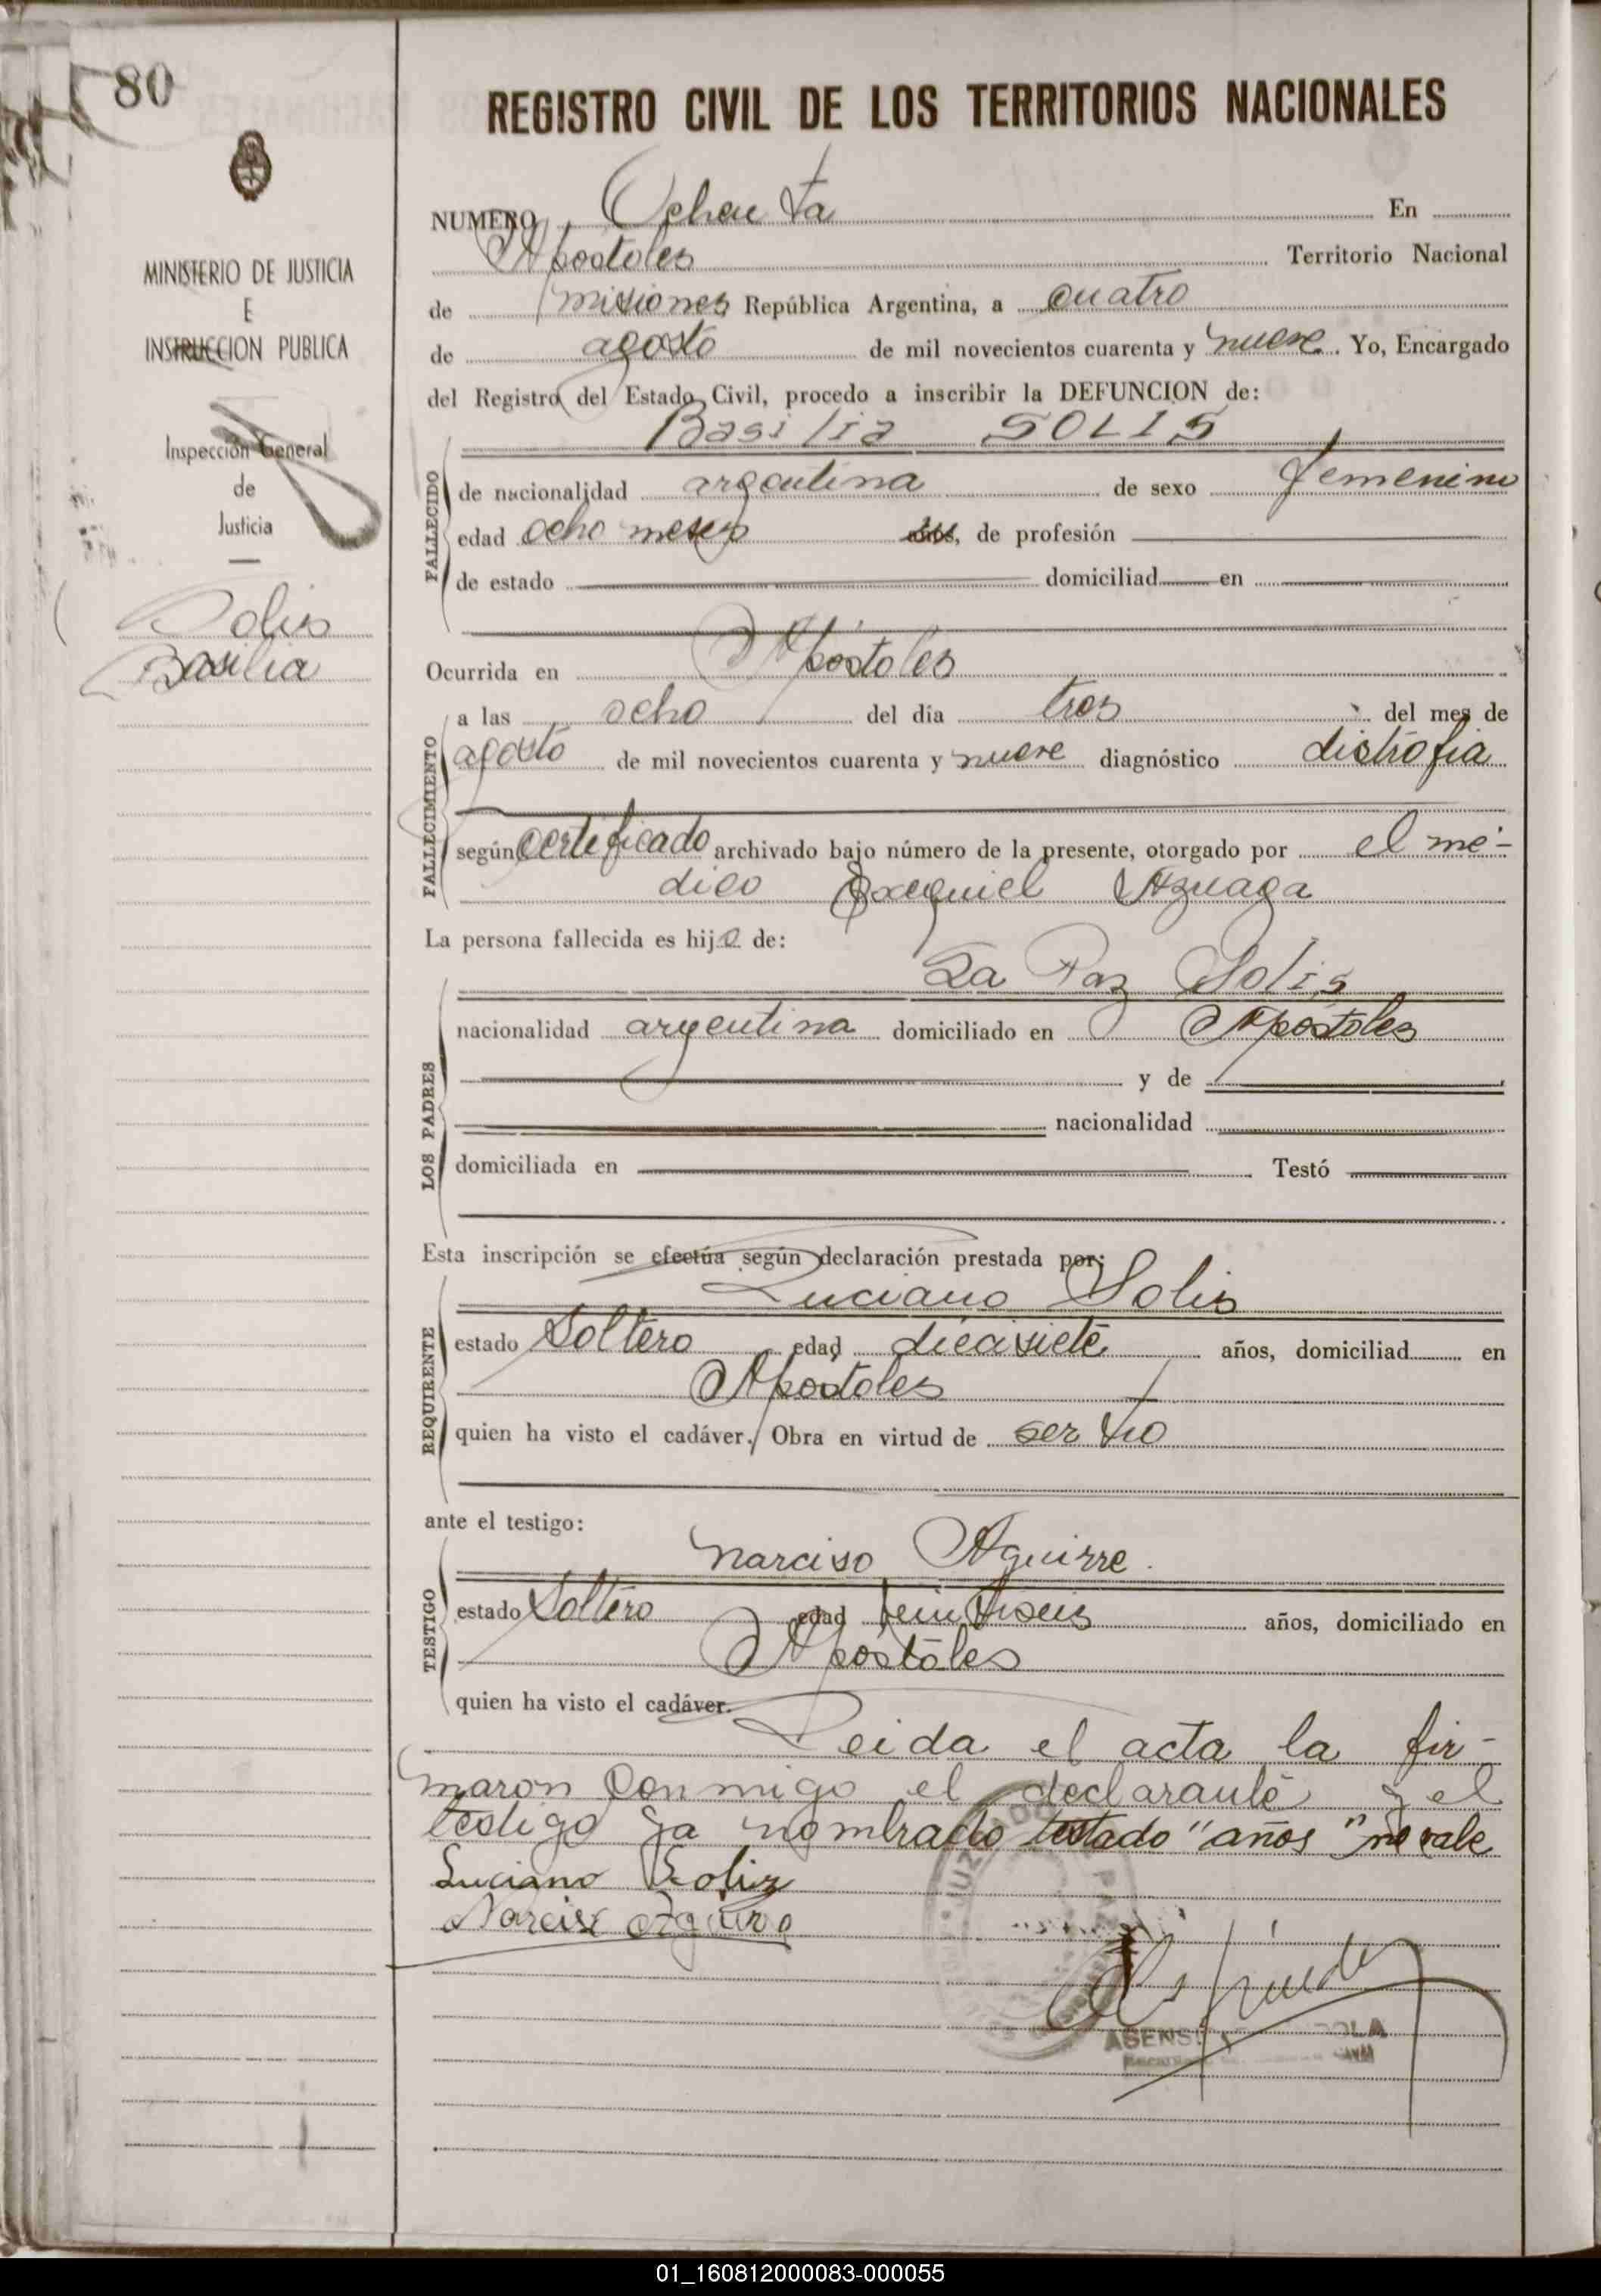 80
MINISTERIO DE JUSTICIA
E
INSTRUCCION PUBLICA
Inspección General
de
Justicia
Solis
Basilia
REGISTRO CIVIL DE LOS TERRITORIOS NACIONALES
NUMERO Ochenta En
Apóstoles Territorio Nacional
de misiones República Argentina, a cuatro
de agosto de mil novecientos cuarenta y nueve. Yo, Encargado
del Registro del Estado Civil, procedo a inscribir la DEFUNCION de:
Basilia SOLIS
FALLECIDO
de nacionalidad argentina de sexo femenino
edad ocho meses años, de profesión
de estado domiciliad en
Ocurrida en Apóstoles
FALLECIMIENTO
a las ocho del día tres del mes de
agosto de mil novecientos cuarenta y nueve diagnóstico distrofia
según certificado archivado bajo número de la presente, otorgado por el mé-
dico Exequiel Azuaga
La persona fallecida es hija de:
LOS PADRES
La Paz Solis
nacionalidad argentina domiciliado en Apóstoles
y de
nacionalidad
domiciliada en Testó
Esta inscripción se efectúa según declaración prestada por:
REQUIRENTE
Luciano Solis
estado soltero edad diecisiete años, domiciliad en
Apóstoles
quien ha visto el cadáver. Obra en virtud de ser tio
ante el testigo:
TESTIGO
narciso Aguirre.
estado soltero edad veintiseis años, domiciliado en
Apóstoles
quien ha visto el cadáver.
Leida el acta la fir-
maron conmigo el declarante y el
testigo ya nombrado testado "años" no vale
Luciano Soliz
Narciso Aguirre
JUZ
ASENS OLA
01_160812000083-000055